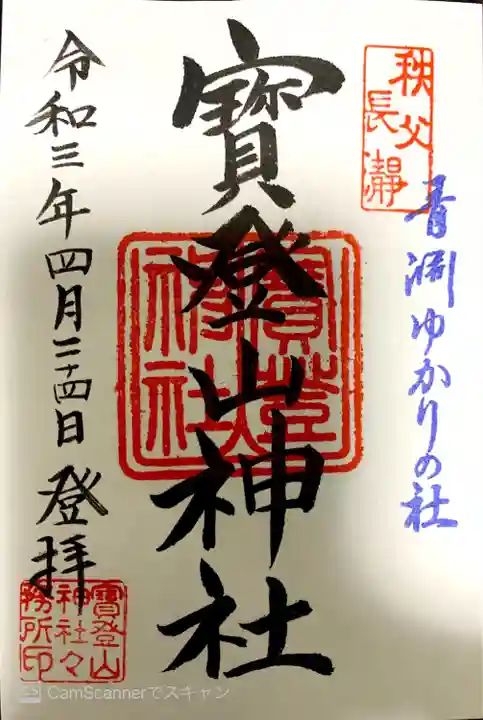 秩父
長瀞
青渊ゆかりの社
寶登山神社
寶登
山神社
令和三年四月二十四日 登拝
寶登山
神社々
務所印
CamScannerでスキャン